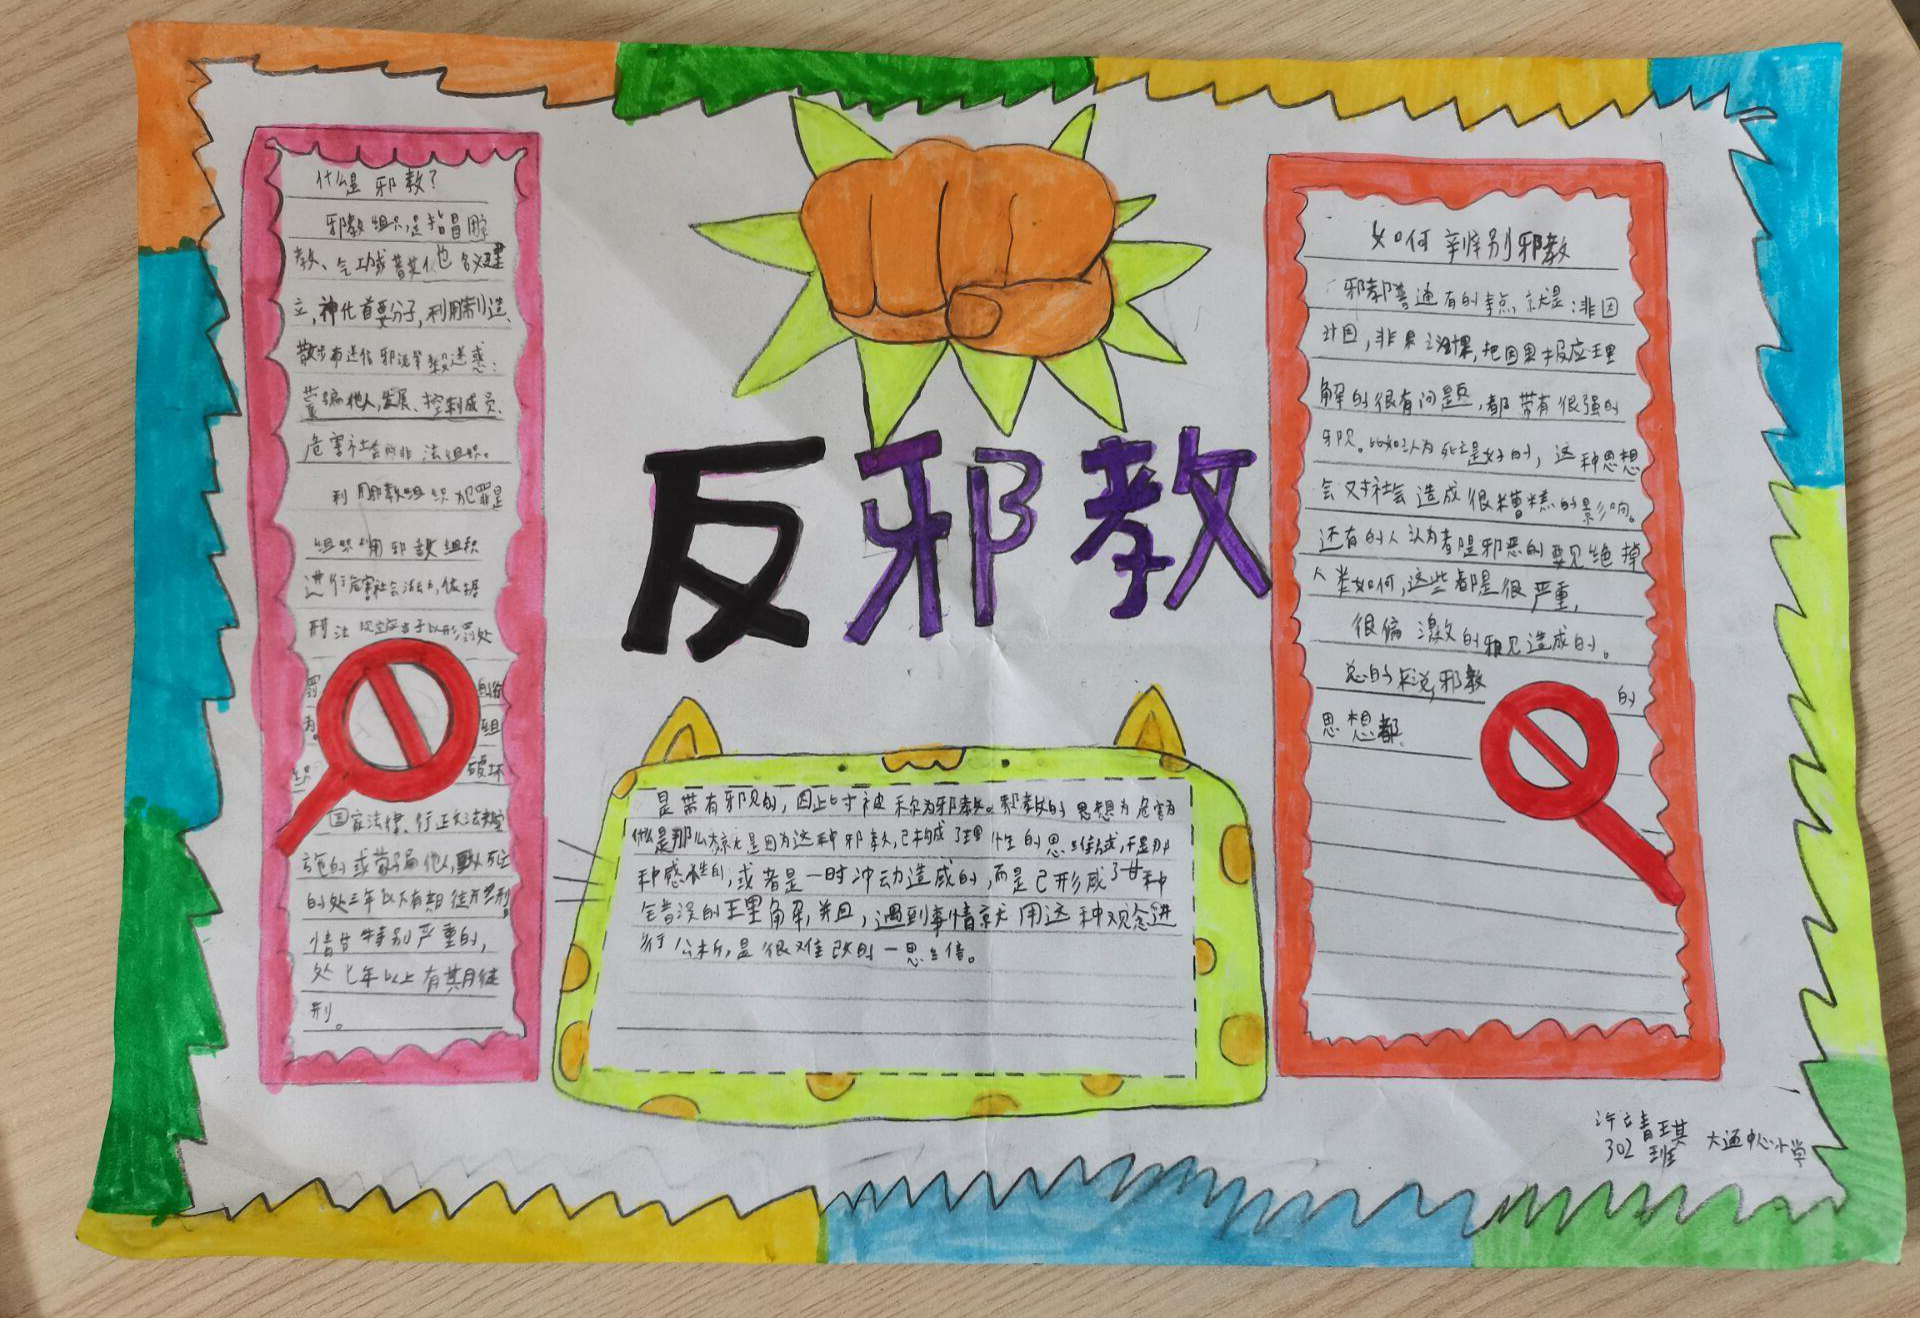 什么是邪教?
邪教组织是指冒用宗
教、气功或者其他名义建
立,神化首要分子,利用制造、
散布迷信邪说等手段迷惑:
蒙骗他人,发展、控制成员,
危害社会的非法组织。
利用邪教组织犯罪是
组织利用邪教组织
进行危害社会活动,依据
刑法规定应当予以刑罚处
罚
为。组
织破坏
国家法律、行正文法规实
施的或蒙骗他人,致人死亡
的处三年以下有期徒刑。
情节特别严重的,
处七年以上有其月徒
刑。
反邪教
是带有邪见的,因此时被称为邪教。邪教的思想为危害为
什么是那么大就是因为这种邪教,已构成了理性的思维模式,于是那
种感性的,或者是一时冲动造成的,而是已形成了一种
全错误的理解,并且,遇到事情就用这种观念进
行分析,是很难改的一思维。
如何辨别邪教
邪教普遍有的特点,就是:非因
计因,非果计果,把因果报应理
解的很有问题,都带有很强的
邪见。比如认为死亡是好的,这种思想
会对社会造成很糟糕的影响。
还有的人认为都是邪恶的要见绝掉
人类如何,这些都是很严重,
很偏激的邪见造成的。
总的来说,邪教的
思想都,
许立青琪
302班 大通中心小学